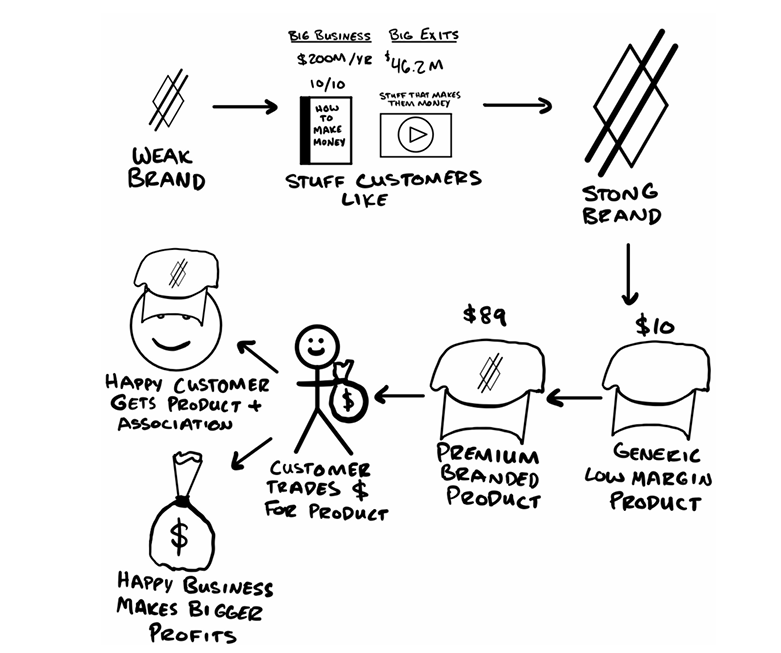 BIG BUSINESS BIG EXITS
$200M/YR $46.2M
10/10
HOW
TO
MAKE
MONEY
STUFF THAT MAKES
THEM MONEY
WEAK
BRAND
STUFF CUSTOMERS
LIKE
STONG
BRAND
$10
GENERIC
LOW MARGIN
PRODUCT
$89
PREMIUM
BRANDED
PRODUCT
$
CUSTOMER
TRADES $
FOR PRODUCT
HAPPY CUSTOMER
GETS PRODUCT +
ASSOCIATION
$
HAPPY BUSINESS
MAKES BIGGER
PROFITS